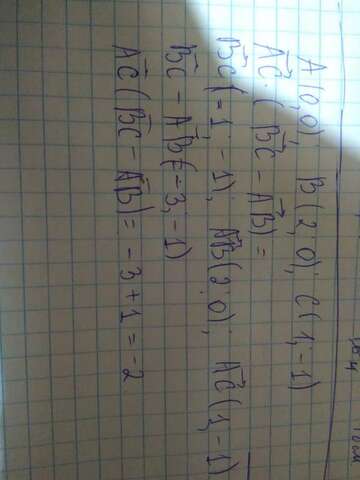 A(0;0); B(2;0); C(1;-1)
AC⃗·(BC⃗ - AB⃗) =
BC⃗(-1;-1); AB⃗(2;0); AC⃗(1;-1)
BC⃗ - AB⃗(-3;-1)
AC⃗(BC⃗ - AB⃗) = -3+1 = -2